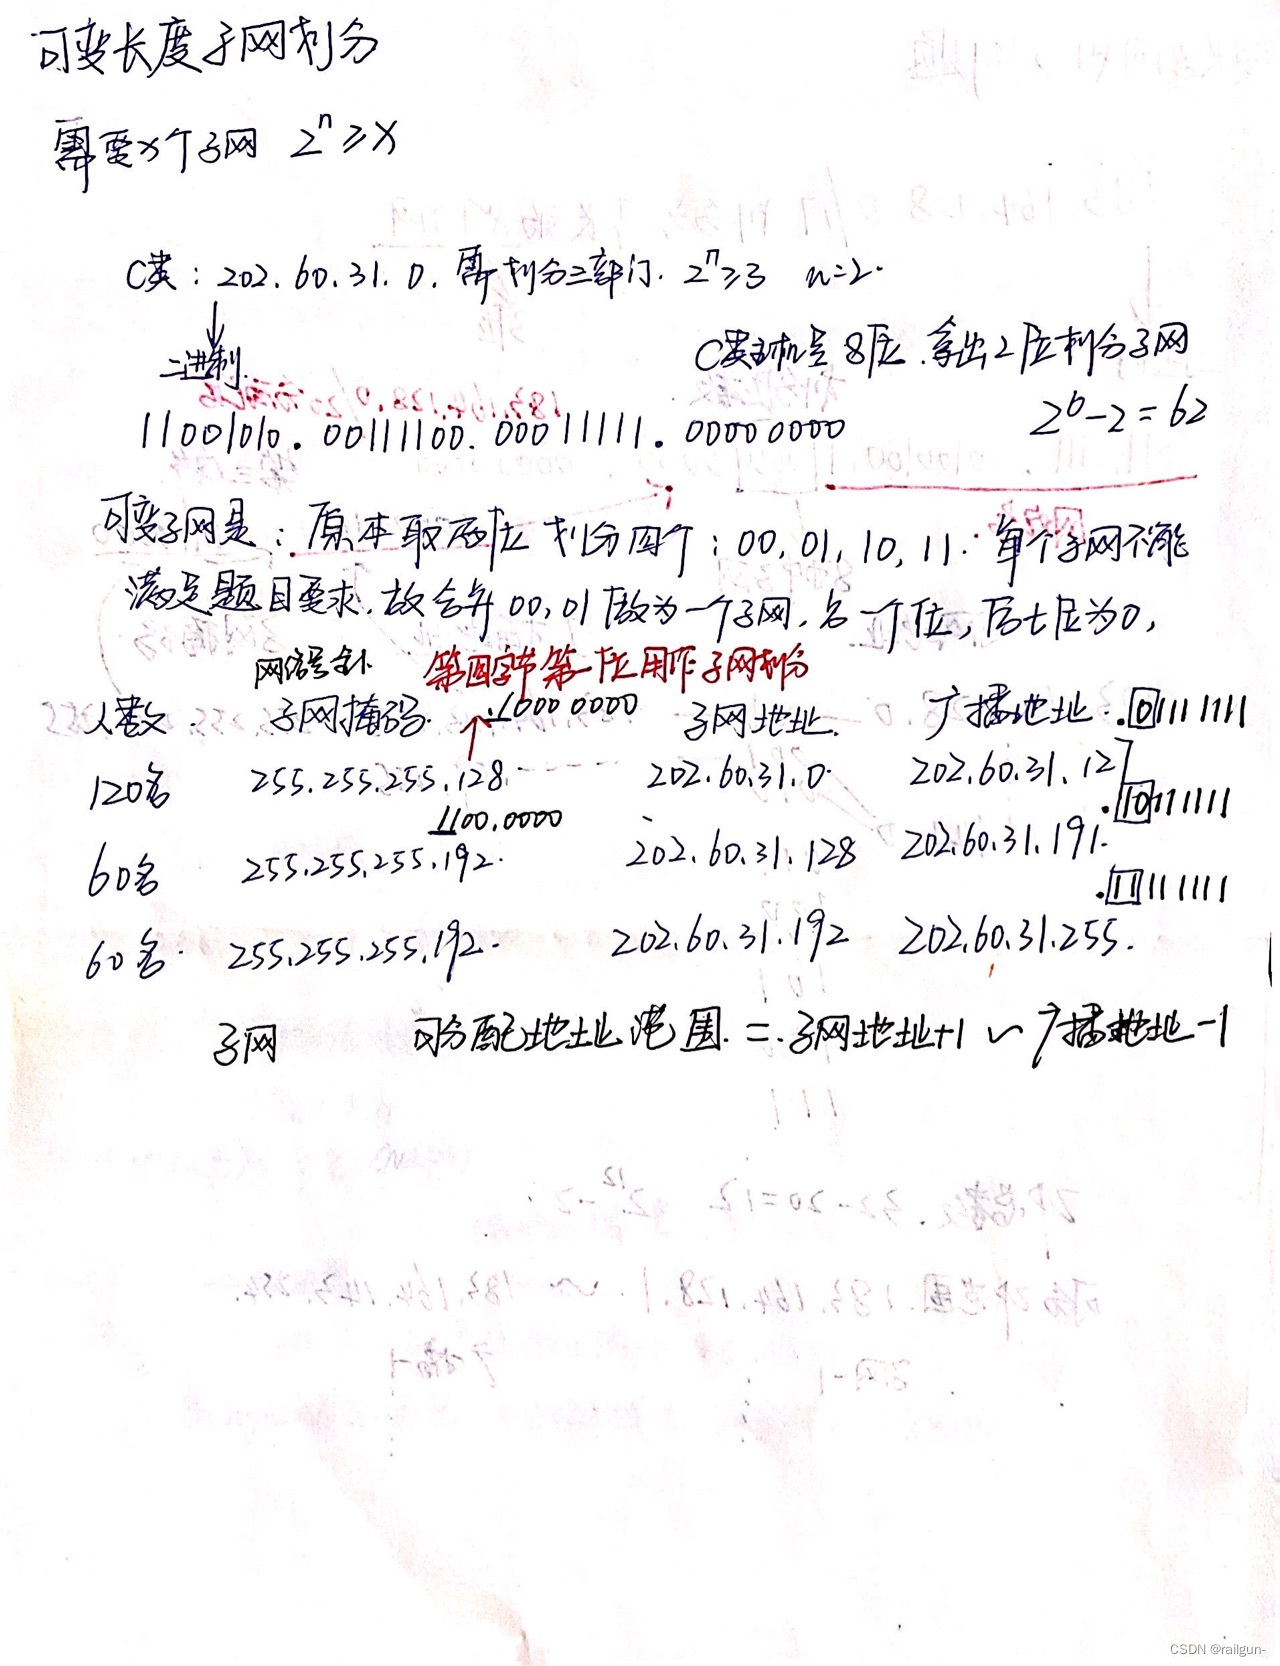 可变长度子网划分
需要x个子网 2ⁿ≥x
C类：202.60.31.0. 需划分三部门. 2ⁿ≥3 n=2.
二进制
C类主机号8位.拿出2位划分子网
11001010.00111100.00011111.00000000
2⁶-2=62
可变子网是：原本取两位划分四个：00,01,10,11.单个子网不能
满足题目要求.故合并00,01做为一个子网.占一个位,后七位为0,
网络号全1 第四字节第一位用作子网划分
人数 子网掩码. .10000000 子网地址. 广播地址..01111111
120名 255.255.255.128. 202.60.31.0. 202.60.31.127
1100.0000 .10111111
60名 255.255.255.192. 202.60.31.128 202.60.31.191.
.11111111
60名. 255.255.255.192. 202.60.31.192 202.60.31.255.
子网 可分配地址范围.=.子网地址+1 ~ 广播地址-1
CSDN @railgun-